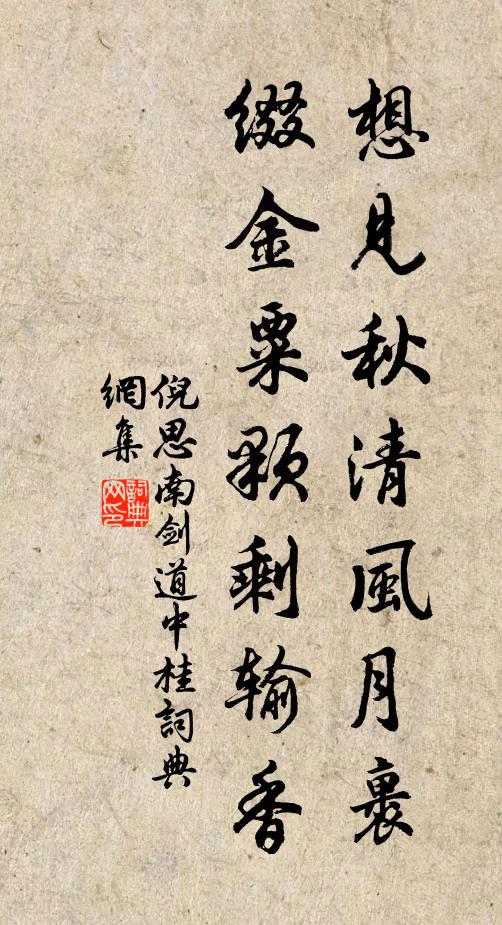 想見秋清風月裏
綴金粟顆剩輸香
倪思南剑道中桂詞典
網集
詞典
网印